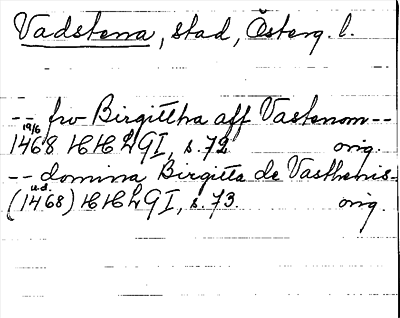 Vadstena, stad, Österg. l.
-- fru Birgittha aff Vastenom --
19/6
1468 HHLGI, s. 72. orig.
-- domina Birgitta de Vasthenis -
u.d.
(1468) HHLGI, s. 73. orig.